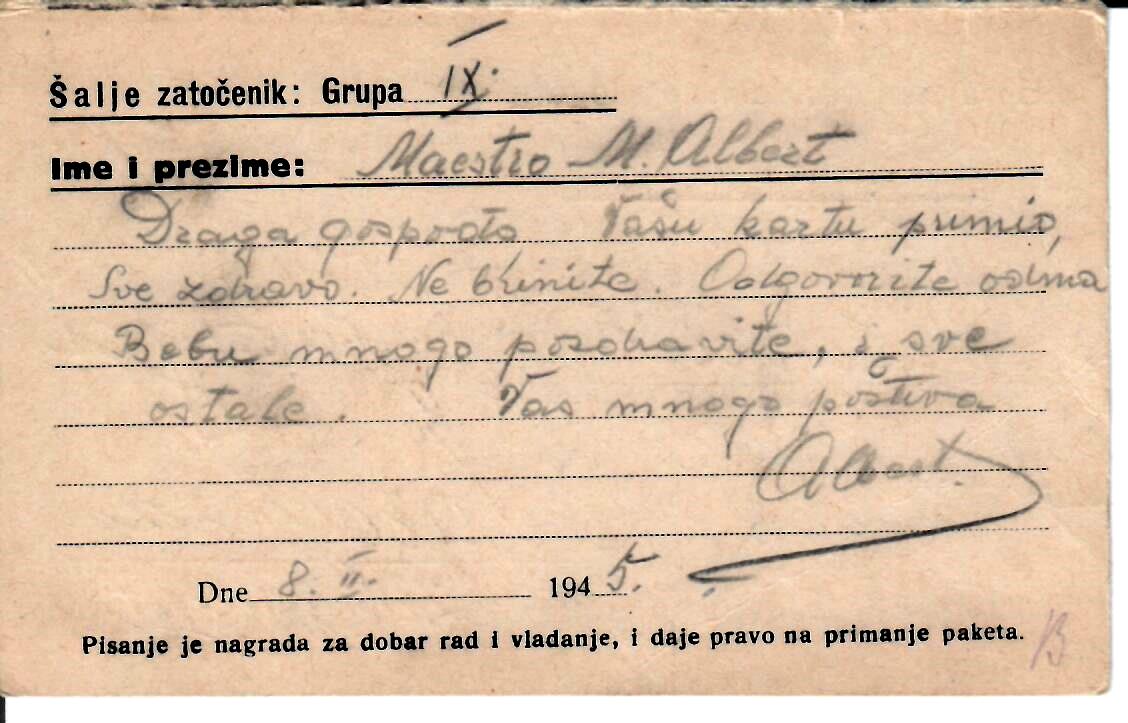 Šalje zatočenik: Grupa IX.
Ime i prezime: Maestro M. Albert
Draga gospođo Vašu kartu primio,
Sve zdravo. Ne brinite. Odgovorite odma
Bebu mnogo pozdravite, i sve
ostale. Vas mnogo poštiva
Albert.
Dne 8. II. 1945.
Pisanje je nagrada za dobar rad i vladanje, i daje pravo na primanje paketa.
B